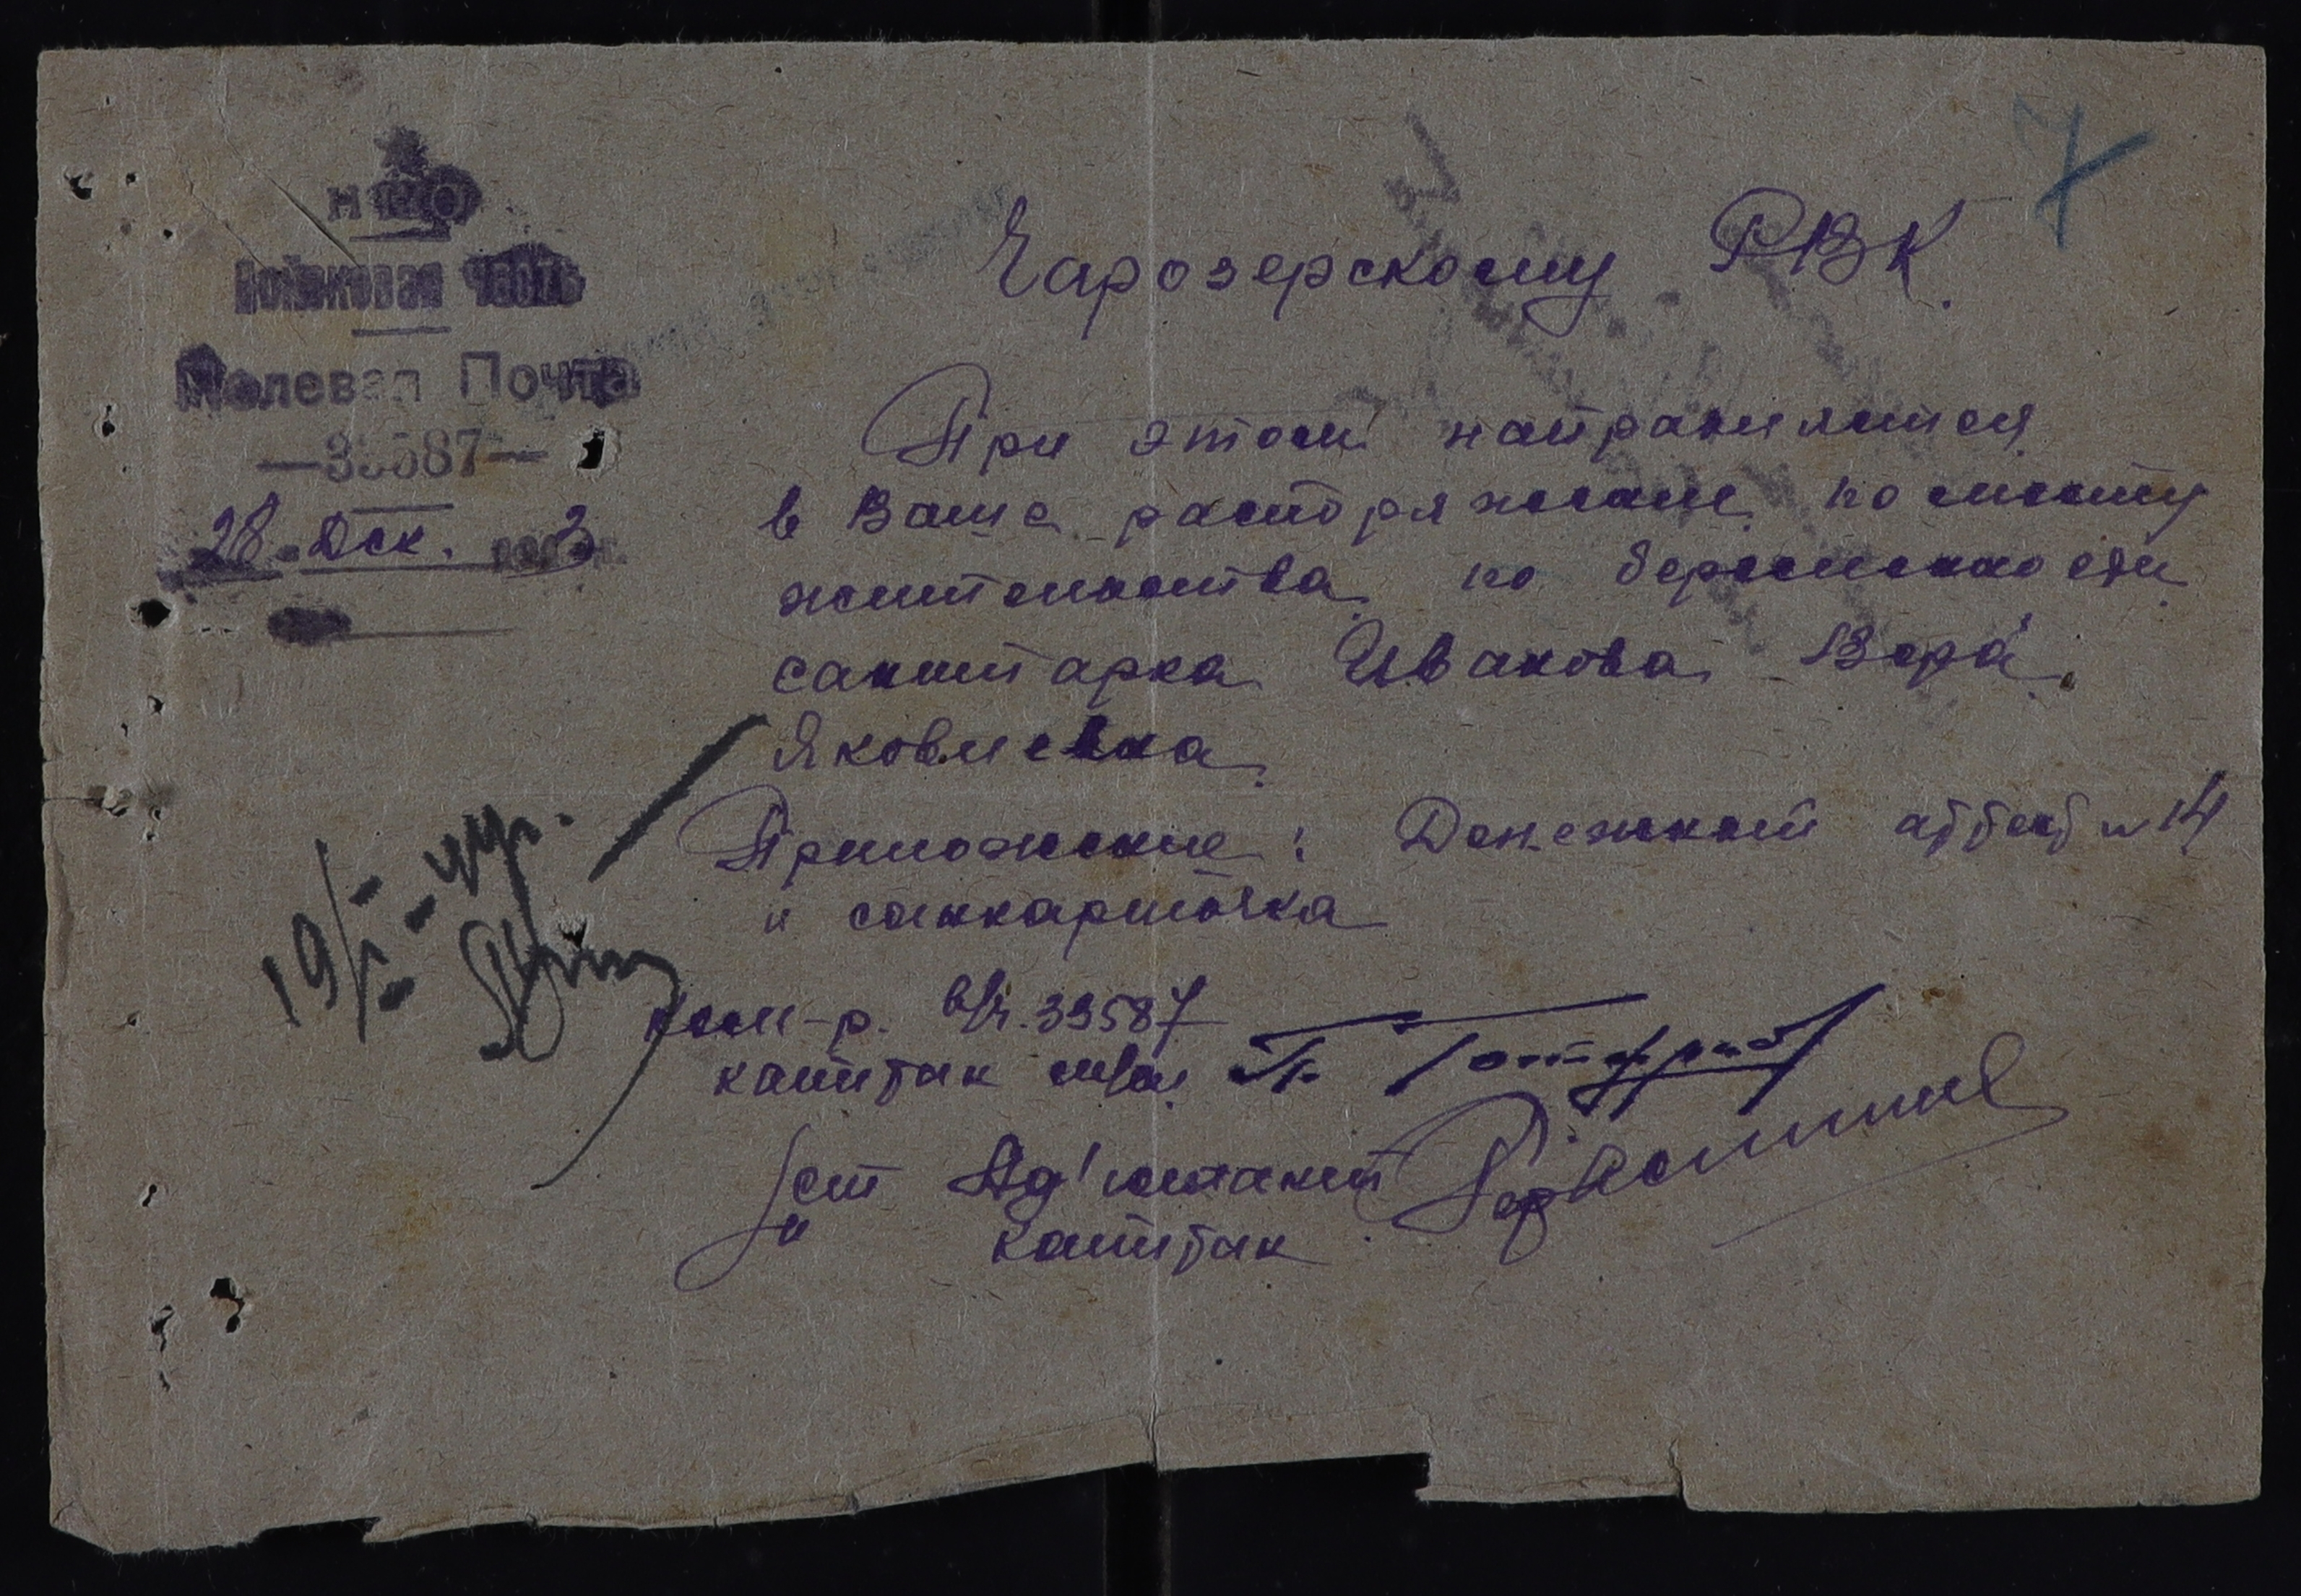 НКО
Войсковая часть
Полевая Почта
—39587—
28. Дек. 1943 г.
7
Чарозерскому РВК.
При этом направляется
в Ваше распоряжение по месту
жительства по беременности
санитарка Иванова Вера
Яковлевна.
Приложение: Денежный аттест н 14
и санкарточка
19/I-44г.
ком-р. в/ч. 39587
капитан м/с Готфрид
ст Ад'ютант
капитан